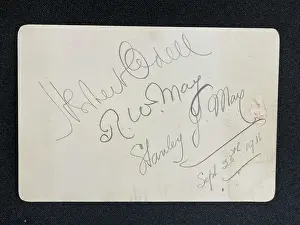 Herbert Odell
R. W. May
Stanley J. May
Sept 1911